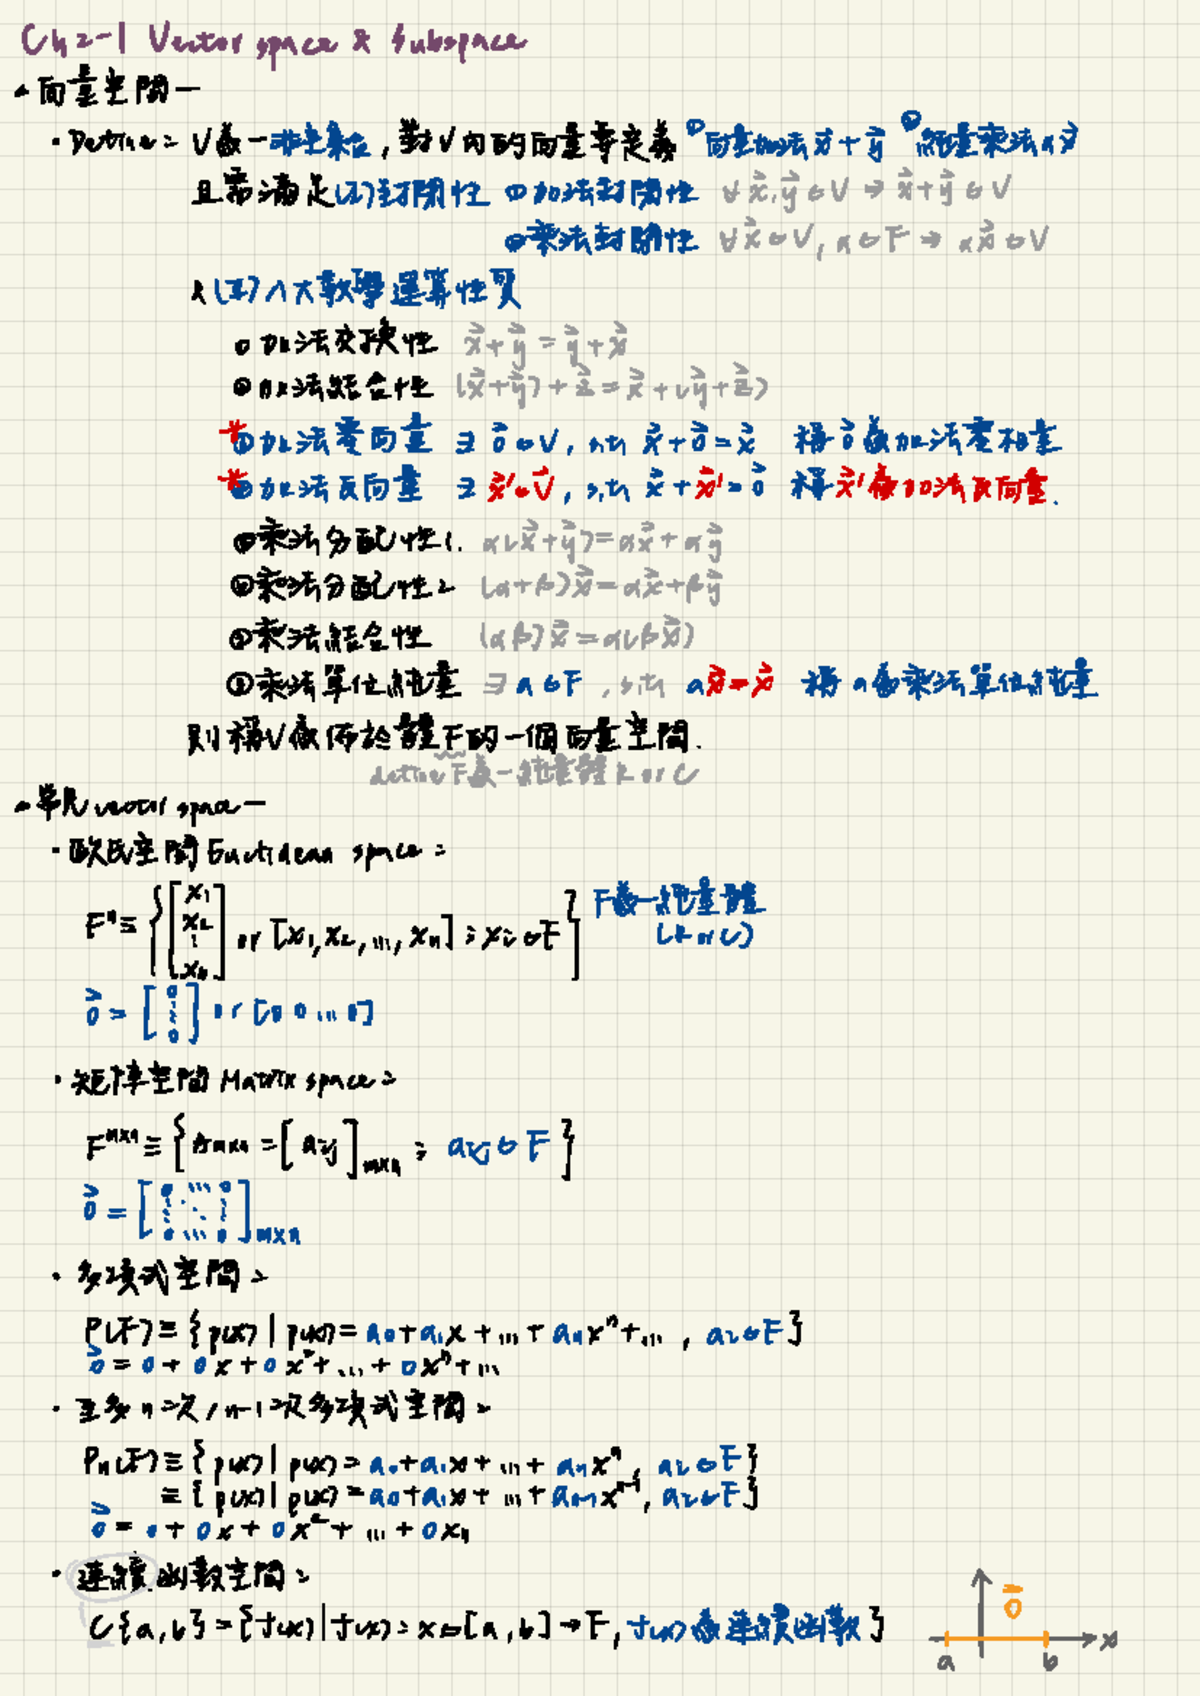 Ch2-1 Vector space & Subspace
向量空間—
• Define: V為一非空集合, 對V內的向量等定義 ①向量加法 x⃗+y⃗ ②純量乘法 αx⃗
且需滿足(I)封閉性 ①加法封閉性 ∀x⃗,y⃗∈V → x⃗+y⃗∈V
②乘法封閉性 ∀x⃗∈V, α∈F → αx⃗∈V
& (II)八大數學運算性質
①加法交換性 x⃗+y⃗=y⃗+x⃗
②加法結合性 (x⃗+y⃗)+z⃗=x⃗+(y⃗+z⃗)
*③加法零向量 ∃ 0⃗∈V, s.th x⃗+0⃗=x⃗ 稱0⃗為加法零向量
*④加法反向量 ∃ x⃗'∈V, s.th x⃗+x⃗'=0⃗ 稱x⃗'為加法反向量.
⑤乘法分配性1. α(x⃗+y⃗)=αx⃗+αy⃗
⑥乘法分配性2 (α+β)x⃗=αx⃗+βy⃗
⑦乘法結合性 (αβ)x⃗=α(βx⃗)
⑧乘法單位純量 ∃ a∈F, s.th ax⃗=x⃗ 稱a為乘法單位純量
則稱V為佈於體F的一個向量空間.
define F為一純量體 R or C
常見vector space—
• 歐氏空間 Euclidean space:
Fⁿ≡{[x₁ x₂ ⋮ xₙ] or [x₁,x₂,...,xₙ] ; xᵢ∈F} F為一純量體
(R or C)
0⃗=[0 ⋮ 0] or [0 0 ... 0]
• 矩陣空間 Matrix space:
F^{m×n}≡{A_{m×n}=[aᵢⱼ]_{m×n} ; aᵢⱼ∈F}
0⃗=[0 ... 0 ⋮ ⋱ ⋮ 0 ... 0]_{m×n}
• 多項式空間:
P(F)≡{p(x)|p(x)=a₀+a₁x+...+aₙxⁿ+..., aᵢ∈F}
0⃗=0+0x+0x²+...+0xⁿ+...
• 至多n次/n-1次多項式空間:
Pₙ(F)≡{p(x)|p(x)=a₀+a₁x+...+aₙxⁿ, aᵢ∈F}
≡{p(x)|p(x)=a₀+a₁x+...+aₙ₋₁xⁿ⁻¹, aᵢ∈F}
0⃗=0+0x+0x²+...+0xₙ
• 連續函數空間:
C{a,b}={f(x)|f(x):x∈[a,b]→F, f(x)為連續函數}
0⃗
a b x